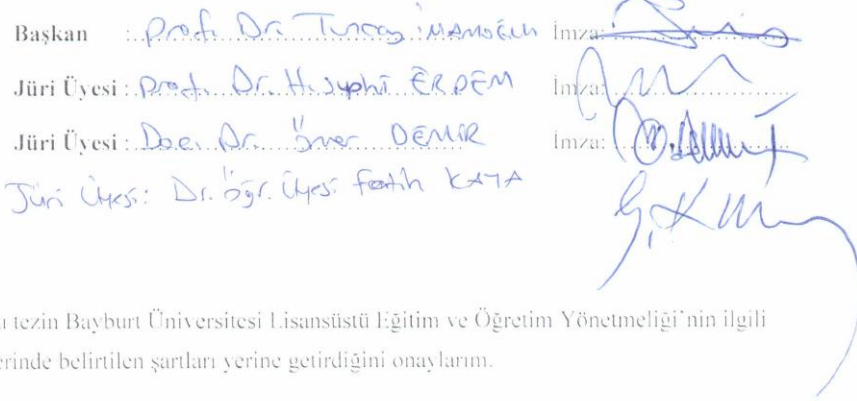 Başkan : Prof. Dr. Tuncay İMAMOĞLU İmza:
Jüri Üyesi : Prof. Dr. H. Suphi ERDEM İmza:
Jüri Üyesi : Doç. Dr. Öner DEMİR İmza:
Jüri Üyesi: Dr. Öğr. Üyesi Fatih KAYA
tezin Bayburt Üniversitesi Lisansüstü Eğitim ve Öğretim Yönetmeliği'nin ilgili
erinde belirtilen şartları yerine getirdiğini onaylarım.